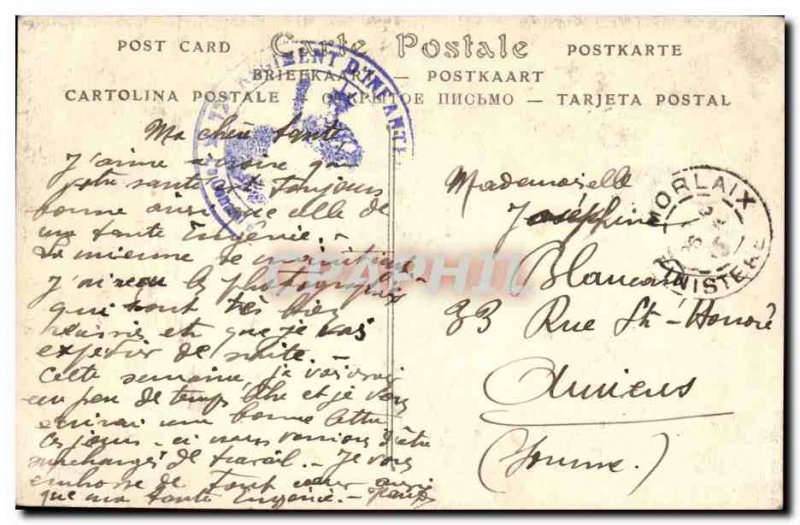 POST CARD Carte Postale POSTKARTE
BRIEFKAART — POSTKAART
CARTOLINA POSTALE — ОТКРЫТОЕ ПИСЬМО — TARJETA POSTAL
REGIMENT D'INFANTE
Ma chère tante,
J'aime à croire que
votre santé est toujours
bonne ainsi que celle de
ma tante Eugénie. —
La mienne se maintient
J'ai reçu les photographies
qui sont très bien
réussies et que je vais
expédier de suite. —
Cette semaine, je vais avoir
un peu de temps libre et je vous
écrirai une bonne lettre
Ces jours-ci nous venions d'être
surchargés de travail. — Je vous
embrasse de tout cœur ainsi
que ma tante Eugénie. —
Mademoiselle
Joséphine
33 Rue St-Honoré
Amiens
(Somme.)
MORLAIX
FINISTERE
GRAPHIL